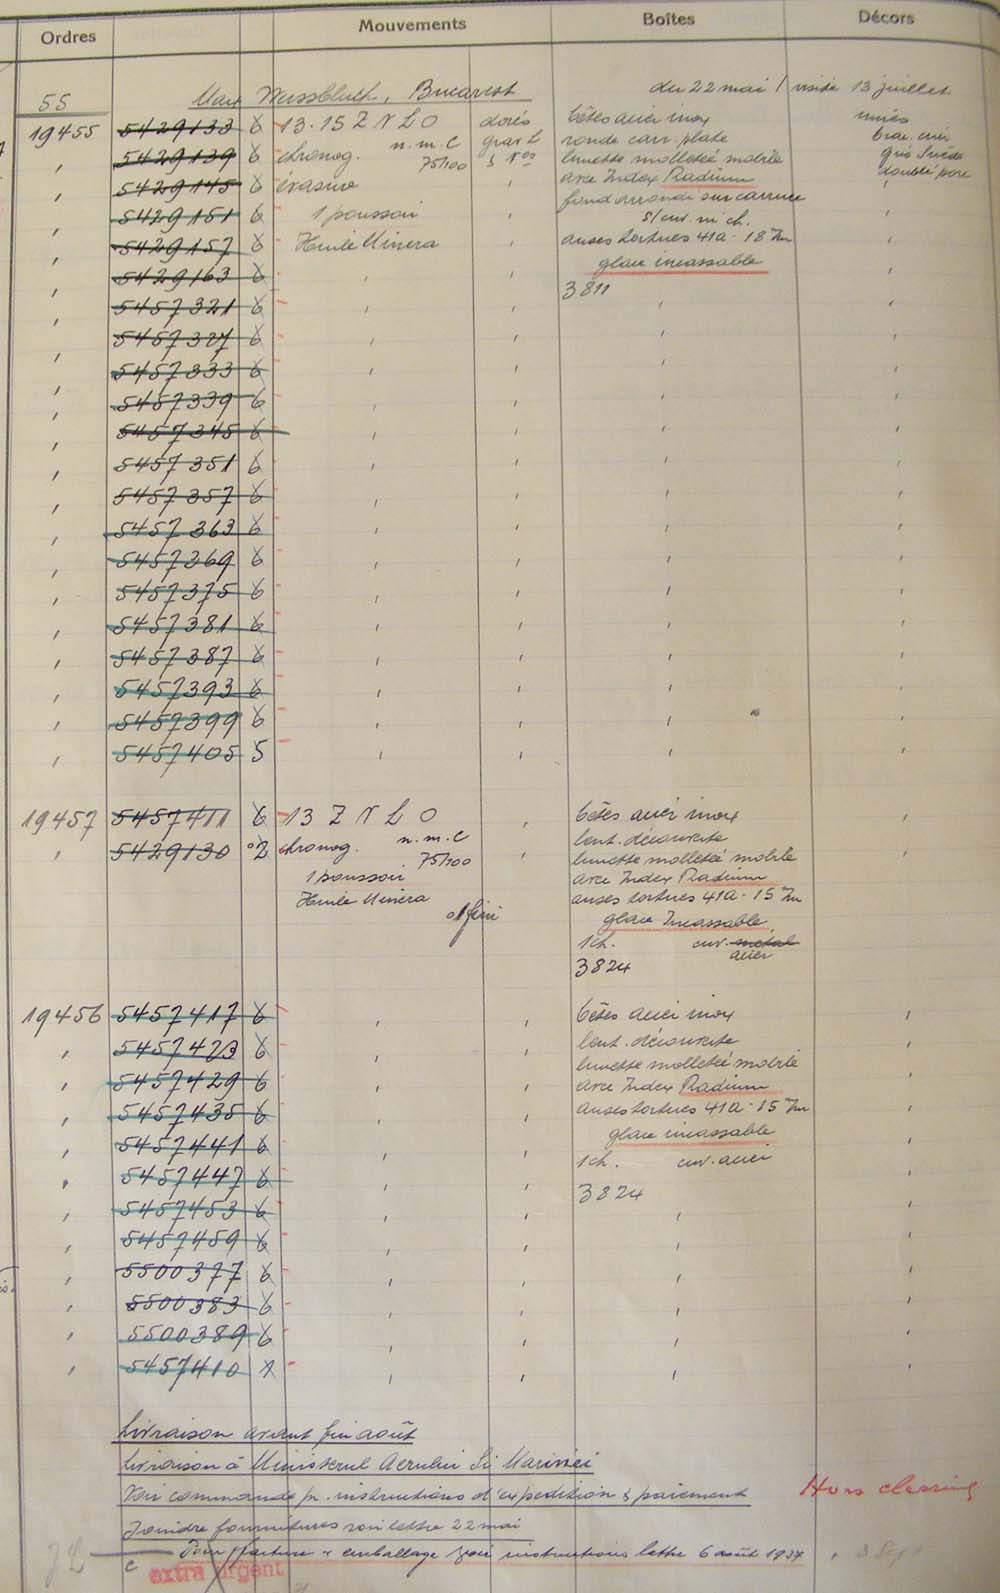 Ordres Mouvements Boîtes Décors
55 Max Weissbluth, Bucarest du 22 mai / visité 13 juillet
19455 5429133 6 13.15 Z N L O dorés bêtes acier inox unies
' 5429139 6 chronog. n.m.C grav L ronde carr. plate brac. cuir
75/100 lunette molletée mobile gris Suède
' 5429145 6 ' avec Index Radium doublé porc
' 5429151 6 1 poussoir ' fond arrondi sur carrure '
s/cuv. ni ch.
' 5429157 6 Huile Minera ' anses tortues 41a - 18 m/m '
glace incassable
' 5429163 6 ' ' 3811 '
' 5457321 6 ' ' ' '
' 5457327 6 ' ' ' '
' 5457333 6 ' ' ' '
' 5457339 6 ' ' ' '
' 5457345 6 ' ' ' '
' 5457351 6 ' ' ' '
' 5457357 6 ' ' ' '
' 5457363 6 ' ' ' '
' 5457369 6 ' ' ' '
' 5457375 6 ' ' ' '
' 5457381 6 ' ' ' '
' 5457387 6 ' ' ' '
' 5457393 6 ' ' ' '
' 5457399 6 ' ' ' '
' 5457405 5 ' ' ' '
19457 5457411 6 13 Z N L O ' bêtes acier inox '
n.m.C lent. découverte
' 5429130 2 chronog. 75/100 ' lunette molletée mobile '
1 poussoir avec Index Radium
Huile Minera anses tortues 41a - 15 m/m
fini glace Incassable
1 ch. cuv. métal
acier
3824
19456 5457417 6 ' ' bêtes acier inox '
' 5457423 6 ' ' lent. découverte '
lunette molletée mobile
' 5457429 6 ' ' avec Index Radium '
' 5457435 6 ' ' anses tortues 41a - 15 m/m '
glace incassable
' 5457441 6 ' ' 1 ch. cuv. acier '
' 5457447 6 ' ' 3824 '
' 5457453 6 ' ' ' '
' 5457459 6 ' ' ' '
' 5500377 6 ' ' ' '
' 5500383 6 ' ' ' '
' 5500389 6 ' ' ' '
' 5457410 1 ' ' ' '
Livraison avant fin août
Livraison à Ministerul Aerului Si Marinei
Voir commande pr. instructions d'expédition & paiement Hors classing
Joindre fournitures voir lettre 22 mai
Pour facture & emballage voir instructions lettre 6 août 1937
C extra urgent